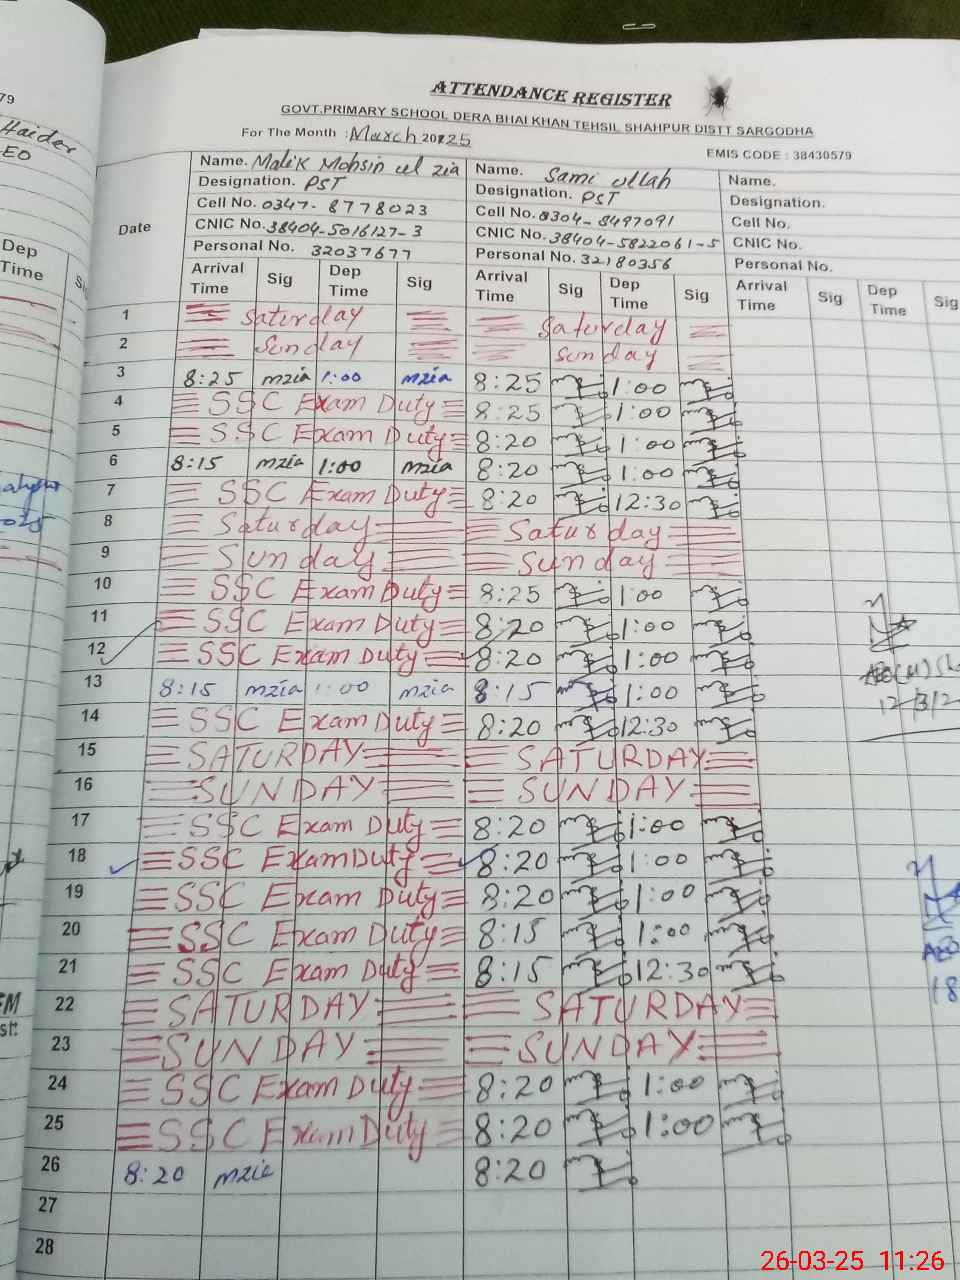 79
Haider
EO
Dep
Time
ATTENDANCE REGISTER
GOVT.PRIMARY SCHOOL DERA BHAI KHAN TEHSIL SHAHPUR DISTT SARGODHA
For The Month : March 2025
EMIS CODE : 38430579
Date
Name. Malik Mohsin ul zia Name. Sami ullah Name.
Designation. PST Designation. PST Designation.
Cell No. 0347-8778023 Cell No. 0304-8497091 Cell No.
CNIC No. 38404-5016127-3 CNIC No. 38404-5822061-5 CNIC No.
Personal No. 32037677 Personal No. 32180356 Personal No.
Arrival Time Sig Dep Time Sig Arrival Time Sig Dep Time Sig Arrival Time Sig Dep Time Sig
1 Saturday Saturday
2 Sunday Sunday
3 8:25 mzia 1:00 mzia 8:25 1:00
4 SSC Exam Duty 8:25 1:00
5 SSC Exam Duty 8:20 1:00
6 8:15 mzia 1:00 mzia 8:20 1:00
7 SSC Exam Duty 8:20 12:30
8 Saturday Saturday
9 Sunday Sunday
10 SSC Exam Duty 8:25 1:00
11 SSC Exam Duty 8:20 1:00
12 SSC Exam Duty 8:20 1:00
13 8:15 mzia 1:00 mzia 8:15 1:00
14 SSC Exam Duty 8:20 12:30
15 SATURDAY SATURDAY
16 SUNDAY SUNDAY
17 SSC Exam Duty 8:20 1:00
18 SSC Exam Duty 8:20 1:00
19 SSC Exam Duty 8:20 1:00
20 SSC Exam Duty 8:15 1:00
21 SSC Exam Duty 8:15 12:30
22 SATURDAY SATURDAY
23 SUNDAY SUNDAY
24 SSC Exam Duty 8:20 1:00
25 SSC Exam Duty 8:20 1:00
26 8:20 mzia 8:20
27
28
12/3/2
18
26-03-25 11:26